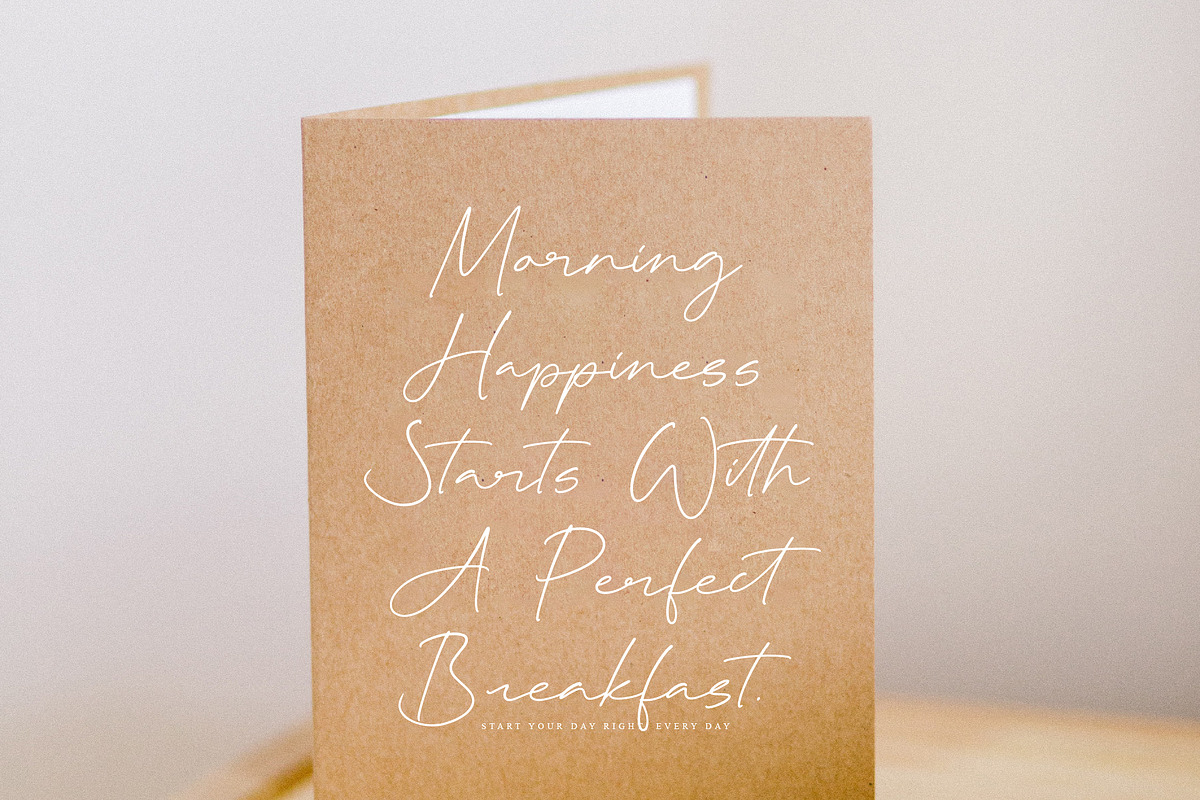 Morning
Happiness
Starts With
A Perfect
Breakfast.
START YOUR DAY RIGHT EVERY DAY